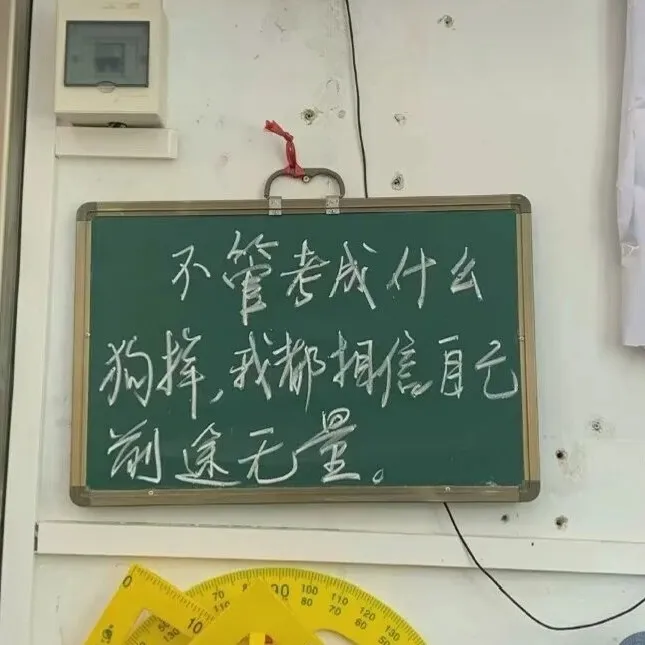 不管考成什么
狗样,我都相信自己
前途无量。
0
10
70 80 90 100 110 120 130
80 70 60 50
130